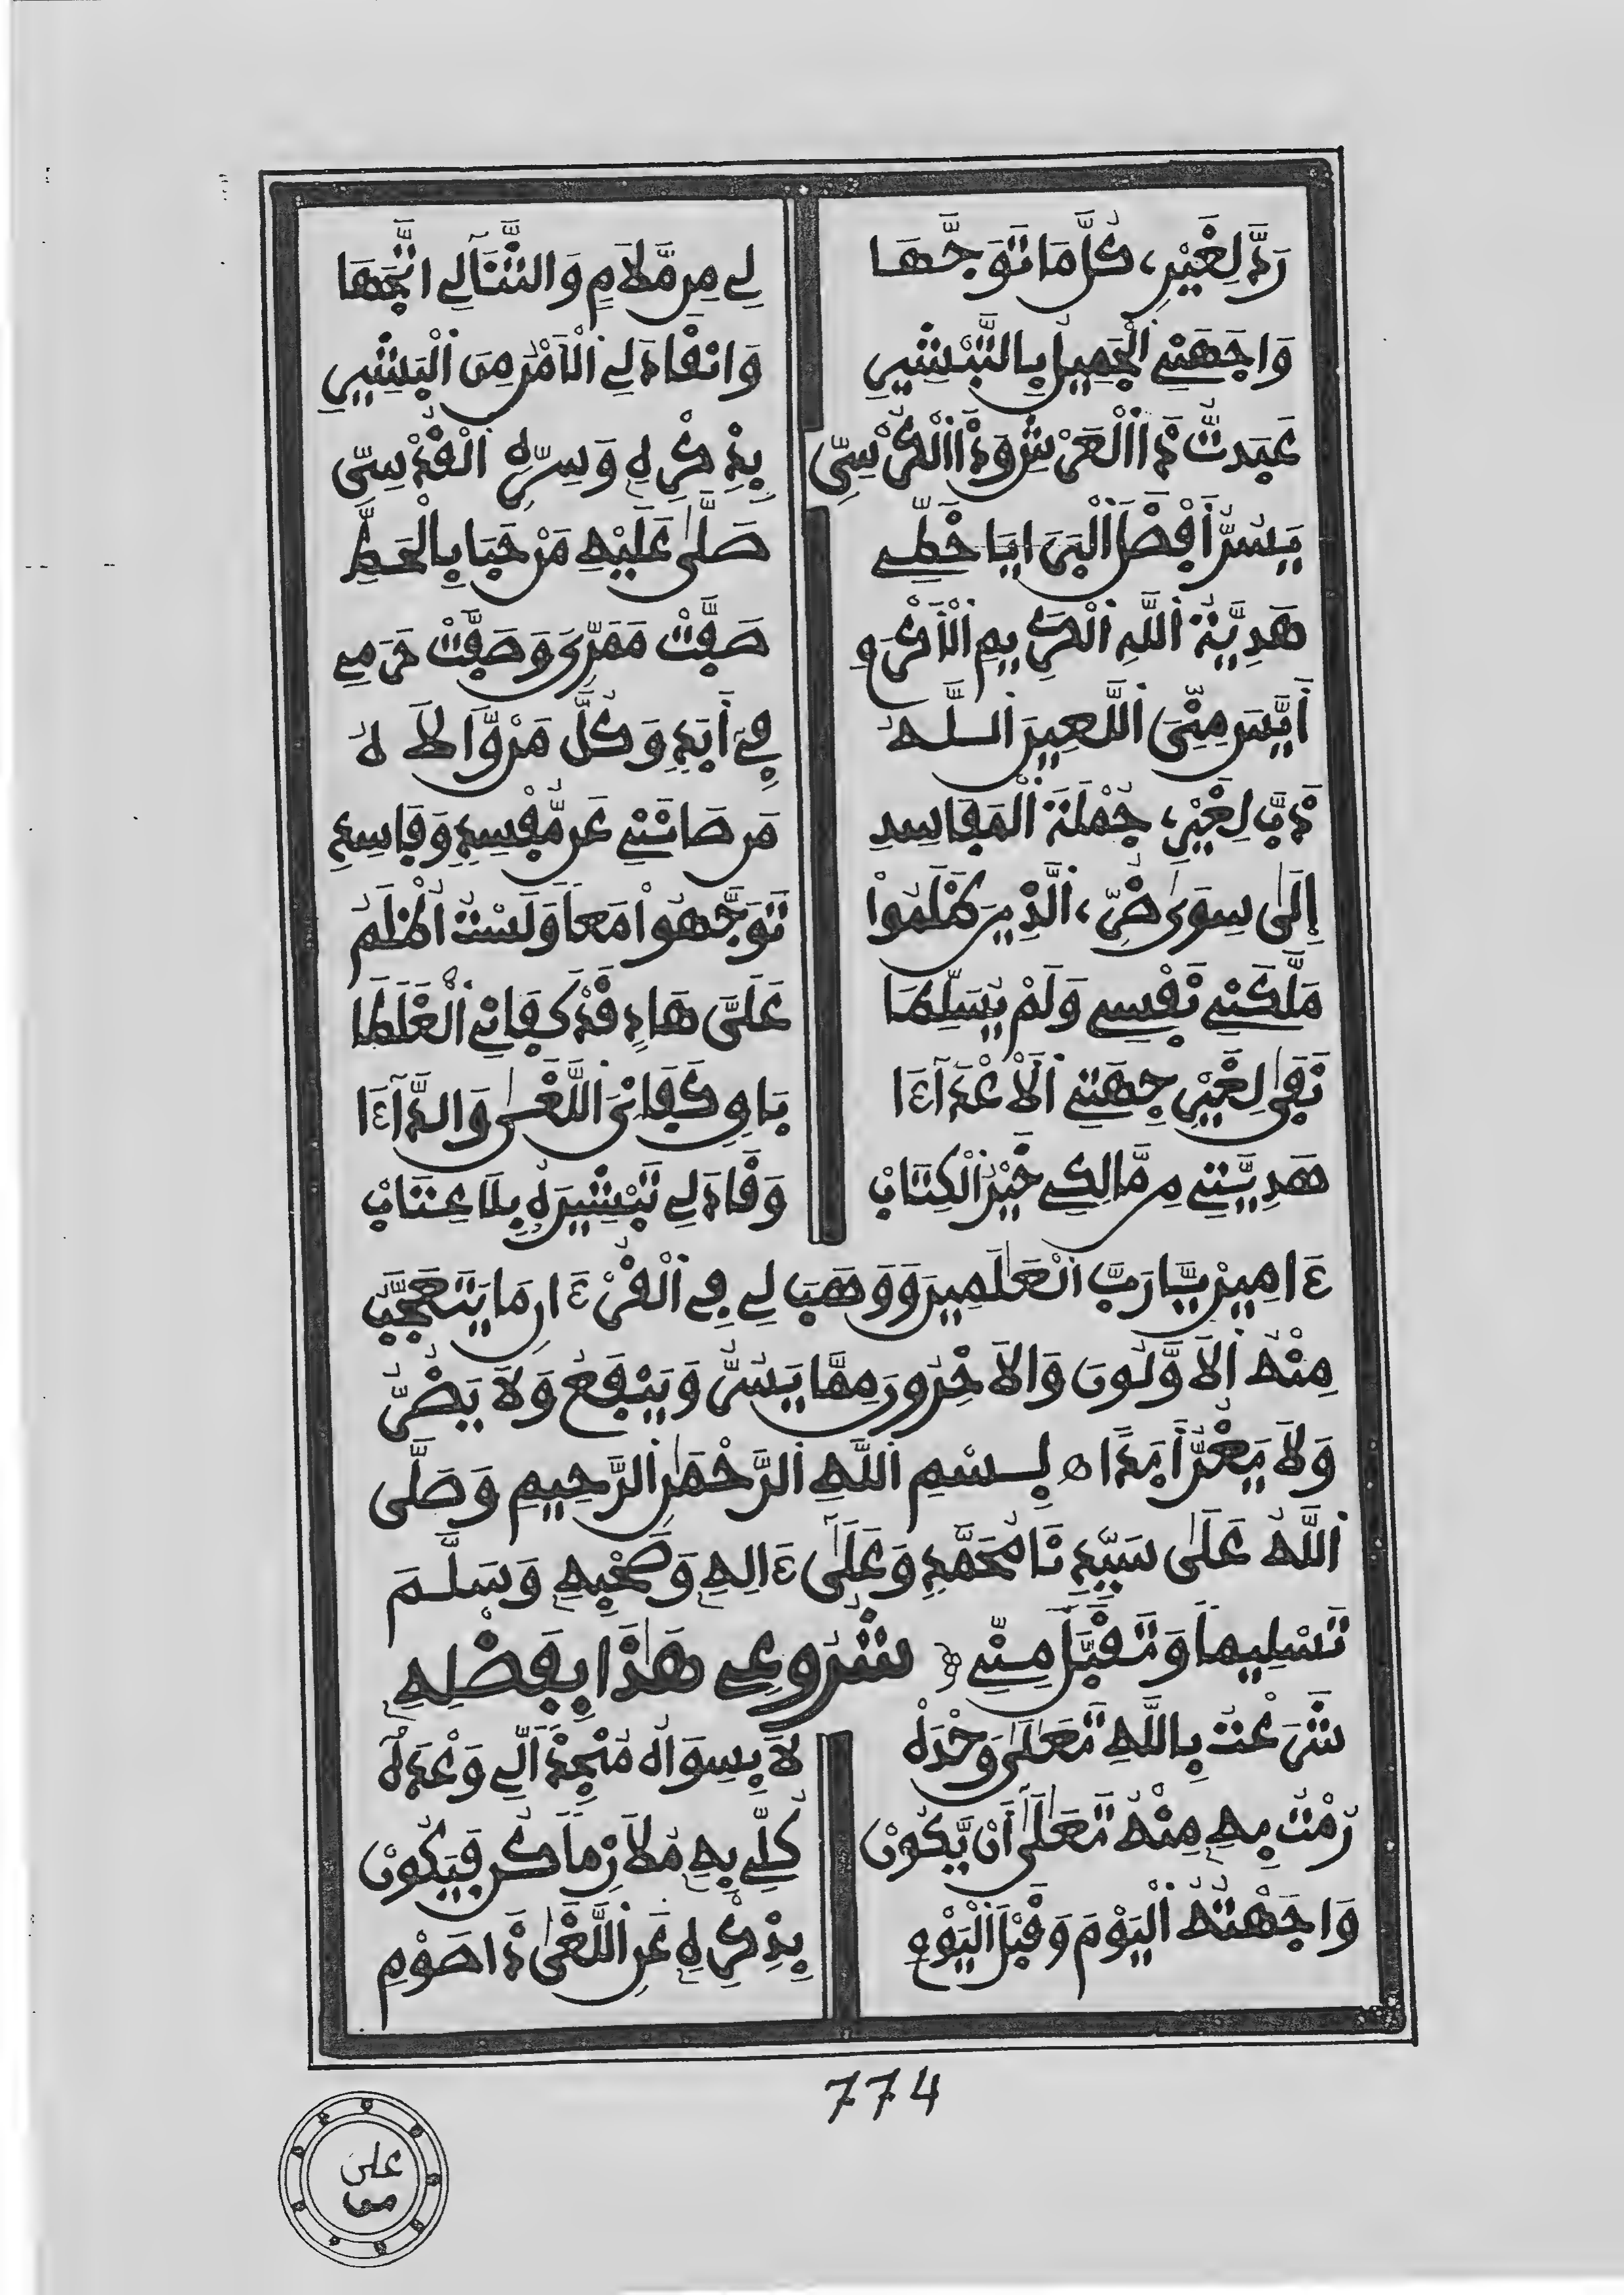 رَدَّ لِغَيْرِي كُلَّ مَا تَوَجَّهَا لِي مِن مَّلَامٍ وَالثَّنَا لِي اتَّجَهَا
وَاجَهَنِي الْجَمِيلُ بِالتَّبْشِيرِ وَانْقَادَ لِي الْأَمْرُ مِنَ الْبَشِيرِ
عَبَدتُّ ذَا الْعَرْشِ وَذَا الْكُرْسِيِّ بِذِكْرِهِ وَسِرِّهِ الْقُدْسِيِّ
يَسُرُّ أَفْضَلَ الْبَرَايَا خَطِّي صَلَّى عَلَيْهِ مَنْ حَبَا بِالْحَطِّ
هَدِيَّةُ اللَّهِ الْكَرِيمِ الْأَكْرَمِ صَفَّتْ مَقَرِّي وَصَفَّتْ حَرَمِي
أَيَّسَ مِنِّيَ اللَّعِينَ اللَّهُ فِي أَبَدٍ وَكُلَّ مَن وَّالَاهُ
ذَبَّ لِغَيْرِي جُمْلَةَ الْمَفَاسِدِ مَن صَانَنِي عَن مُّفْسِدٍ وَفَاسِدِ
إِلَى سِوَى ضُرِّي الَّذِينَ ظَلَمُوا تَوَجَّهُوا مَعًا وَلَسْتُ أَظْلِمُ
مَلَّكَنِي نَفْسِي وَلَمْ يُسَلِّطَا عَلَيَّ هَادٍ قَدْ كَفَانِي الْغَلَطَا
نَفَى لِغَيْرِ جِهَتِي الْأَعْدَاءَا بَاقٍ كَفَانِيَ اللَّغَى وَالدَّاءَا
هَدِيَّتِي مِن مَّالِكِي خَيْرُ الْكِتَابْ وَقَادَ لِي تَبْشِيرَهُ بِلَا عِتَابْ
ءَامِينَ يَا رَبَّ الْعَالَمِينَ وَوَهَبَ لِي فِي الْقُرْءَانِ مَا يَتَعَجَّبُ
مِنْهُ الْأَوَّلُونَ وَالْآخِرُونَ مِمَّا يَسُرُّ وَيَنْفَعُ وَلَا يَضُرُّ
وَلَا يَغُرُّ أَبَدًا ه بِسْمِ اللَّهِ الرَّحْمَٰنِ الرَّحِيمِ وَصَلَّى
اللَّهُ عَلَى سَيِّدِنَا مُحَمَّدٍ وَعَلَى ءَالِهِ وَصَحْبِهِ وَسَلَّمَ
تَسْلِيمًا وَتَقَبَّلَ مِنِّي شُرُوعِي هَذَا بِفَضْلِهِ
شَرَعْتُ بِاللَّهِ تَعَالَى وَحْدَهُ لَا بِسِوَاهُ مُنْجِزًا لِي وَعْدَهُ
رُمْتُ بِهِ مِنْهُ تَعَالَى أَن يَّكُونْ كُلِّي بِهِ مُلَازِمًا كُن فَيَكُونْ
وَاجَهْتُهُ الْيَوْمَ وَقَبْلَ الْيَوْمِ بِذِكْرِهِ عَنِ اللَّغَى ذَا صَوْمِ
774